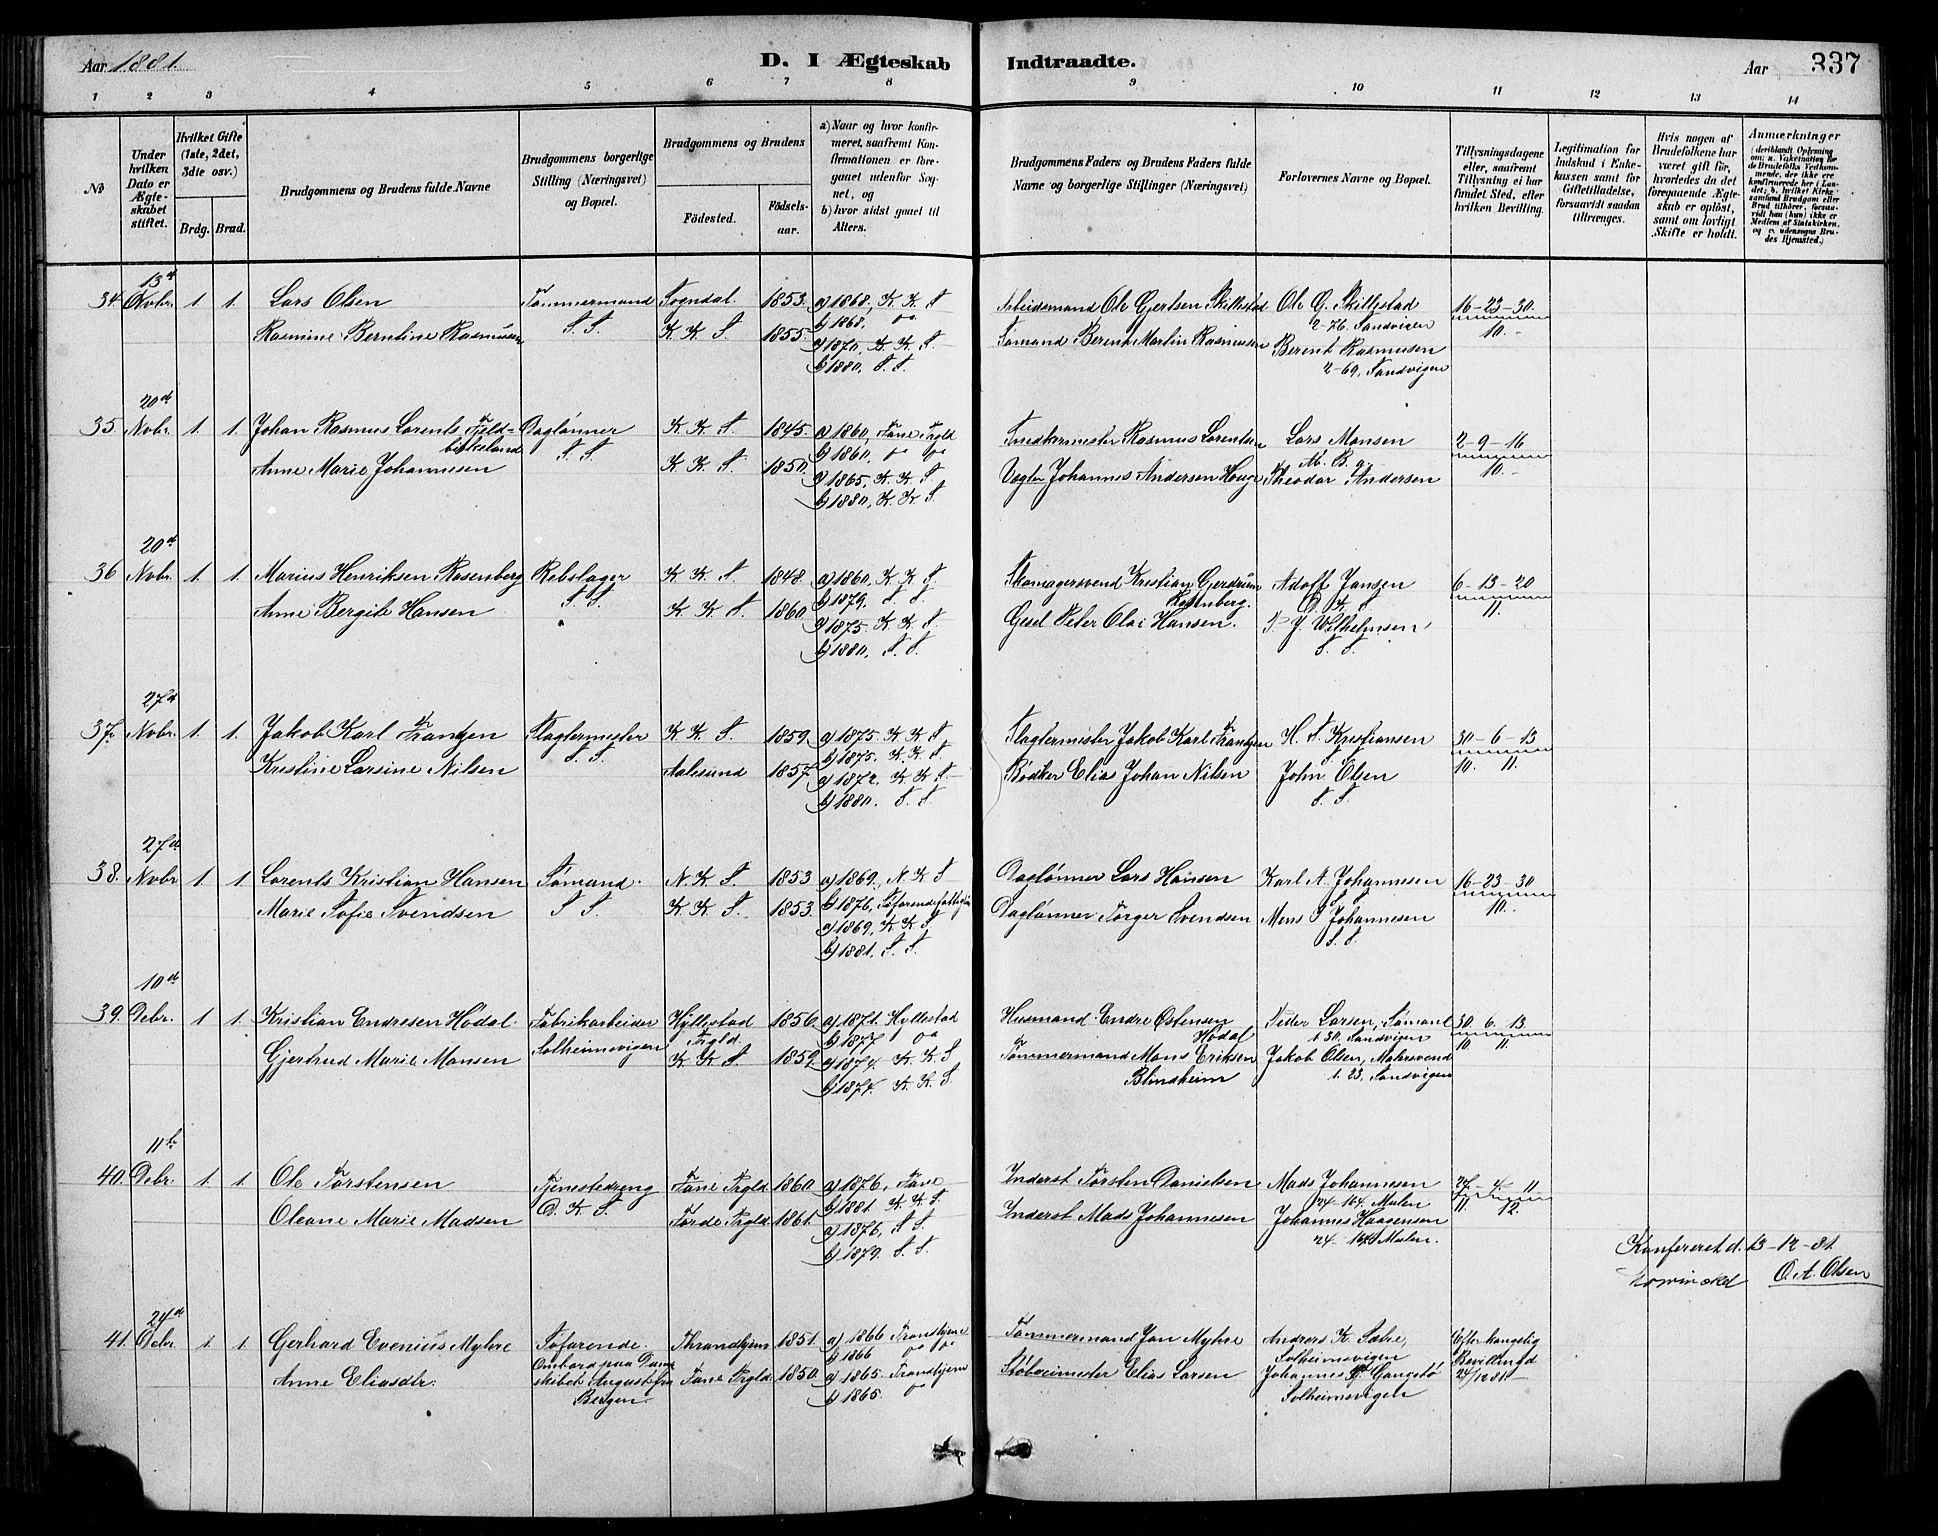 Aar 1881.
D. I Ægteskab
Indtraadte.
Aar
337
1 2 3 4 5 6 7 8
9 10 11 12 13 14
No
Under hvilken Dato er Ægteskabet stiftet.
Hvilket Gifte (1ste, 2det, 3die osv.)
Brdg. Brud.
Brudgommens og Brudens fulde Navne
Brudgommens borgerlige Stilling (Næringsvei) og Bopæl.
Brudgommens og Brudens
Fødested.
Fødselsaar.
a) Naar og hvor konfirmeret, saafremt Konfirmationen er foregaaet udenfor Sognet, og
b) hvor sidst gaaet til Alters.
Brudgommens Faders og Brudens Faders fulde Navne og borgerlige Stillinger (Næringsvei)
Forlovernes Navne og Bopæl.
Tillysningsdagene eller, saafremt Tillysning ei har fundet Sted, efter hvilken Bevilling.
Legitimation for Indskud i Enkekassen samt for Giftetilladelse, forsaavidt saadan tiltrænges.
Hvis nogen af Brudefolkene har været gift før, hvorledes da det foregaaende Ægteskab er opløst, samt om lovligt Skifte er holdt.
Anmærkninger
34. 13de Novbr. 1. 1. Lars Olsen Tømmermand Sogndal. 1853. a) 1868, K. K. S
Rasmine Berntine Rasmusen S. S. K. K. S 1855. b) 1868.
a) 1870, K. K. S.
b) 1880, S. S.
Arbeidsmand Ole Gjertsen Skillestad Ole G. Skillestad 16-23-30.
2-76. Sandvigen 10.
Sømand Berent Martin Rasmusen Berent Rasmusen
2-69, Sandvigen
35. 20de Novbr. 1. 1. Johan Rasmus Lorents Fjeldbirkeland Daglønner K. K. S 1845. a) 1860, Fane Prgld
Anne Marie Johannesen S. S. K. K. S 1850. b) 1860.
a) 1865, K. K. S
b) 1880, K. K. S.
Snedkermester Rasmus Lorentsen Lars Monsen 2-9-16
10.
Vægter Johannes Andersen Houge Theodor Andersen
36 20de Novbr. 1. 1. Marius Henriksen Rosenberg Rebslager K. K. S 1848. a) 1860, K K S.
Anne Bergite Hansen S. S. K K S 1860 b) 1879, S S.
a) 1875. K. K. S.
b) 1880, S. S.
Skomagersvend Kristian Gerdrum Rosenberg. Adolf Jansen 6-13-20
D. K. S 11.
Gesel Peter Olai Hansen. P. J. Wilhelmsen
S. S.
37. 27de Novbr. 1. 1. Jakob Karl Frantzen Slagtermester K K. S. 1859. a) 1875 K K S.
Kristine Larsine Nilsen S. S. Aalesund 1857. b) 1875. K. K. S
a) 1872. K K S
b) 1880. S. S
Slagtermester Jakob Karl Frantzen H. S. Kristiansen 30-6-13
10. 11.
Bødker Elias Johan Nilsen John Olsen
S. S.
38. 27de Novbr 1. 1. Lorents Kristian Hansen Sømand. N. K. S. 1853 a) 1869. N. K S
Marie Sofie Svendsen S S. K. K S. 1853. b) 1876,
a) 1869, K K S.
b) 1881. S. S.
Daglønner Lars Hansen Karl A. Johannesen 16-23-30
S S 10.
Daglønner Torger Svendsen Mons S Johannesen
S. S.
39. 10de Debr. 1 1. Kristian Endresen Hodal. Fabrikarbeider Hyllestad Prgld. 1856. a) 1871. Hyllestad
Gjertrud Marie Monsen Solheimsvigen K. K S 1859. b) 1877
a) 1874. K. K S
b) 1874. K. K S.
Husmand Endre Østensen Hodal Peder Larsen, Sømand 30. 6. 13.
1. 30. Sandvigen 10. 11.
Tømmermand Mons Eriksen Blindheim Jakob Olsen, Malersvend
1. 23, Sandvigen
40. 11te Debr. 1 1 Ole Torstensen Tjenestedreng Fane Prgld 1860 a) 1876, Fane
Oleane Marie Madsen D. K S. Førde Prgld 1861. b) 1881 K K S.
a) 1876, S S
b) 1879. S. S.
Inderst Torsten Danielsen Mads Johannesen 27-4-11
24-164. Mulen 11. 12.
Inderst Mads Johannesen Johannes Haagensen
24-164 Mulen.
Konfereret d. 13-12-81.
O. A. Olsen
41. 24de Debr 1 1 Gerhard Evenius Myhre Søfarende. Throndhjem 1851. a) 1866 Trondhjem
Anne Eliasdtr. Ombord paa Dampskibet August fra Bergen. Fane Prgld. 1850. b) 1866
a) 1865. Trondhjem
b) 1865.
Tømmermand Jan Myhre Andreas K. Sabre, Efter kongelig
Solheimsvigen Bevilling
Støberimester Elias Larsen Johannes Gangstø 24/12 81
Solheimsvigen